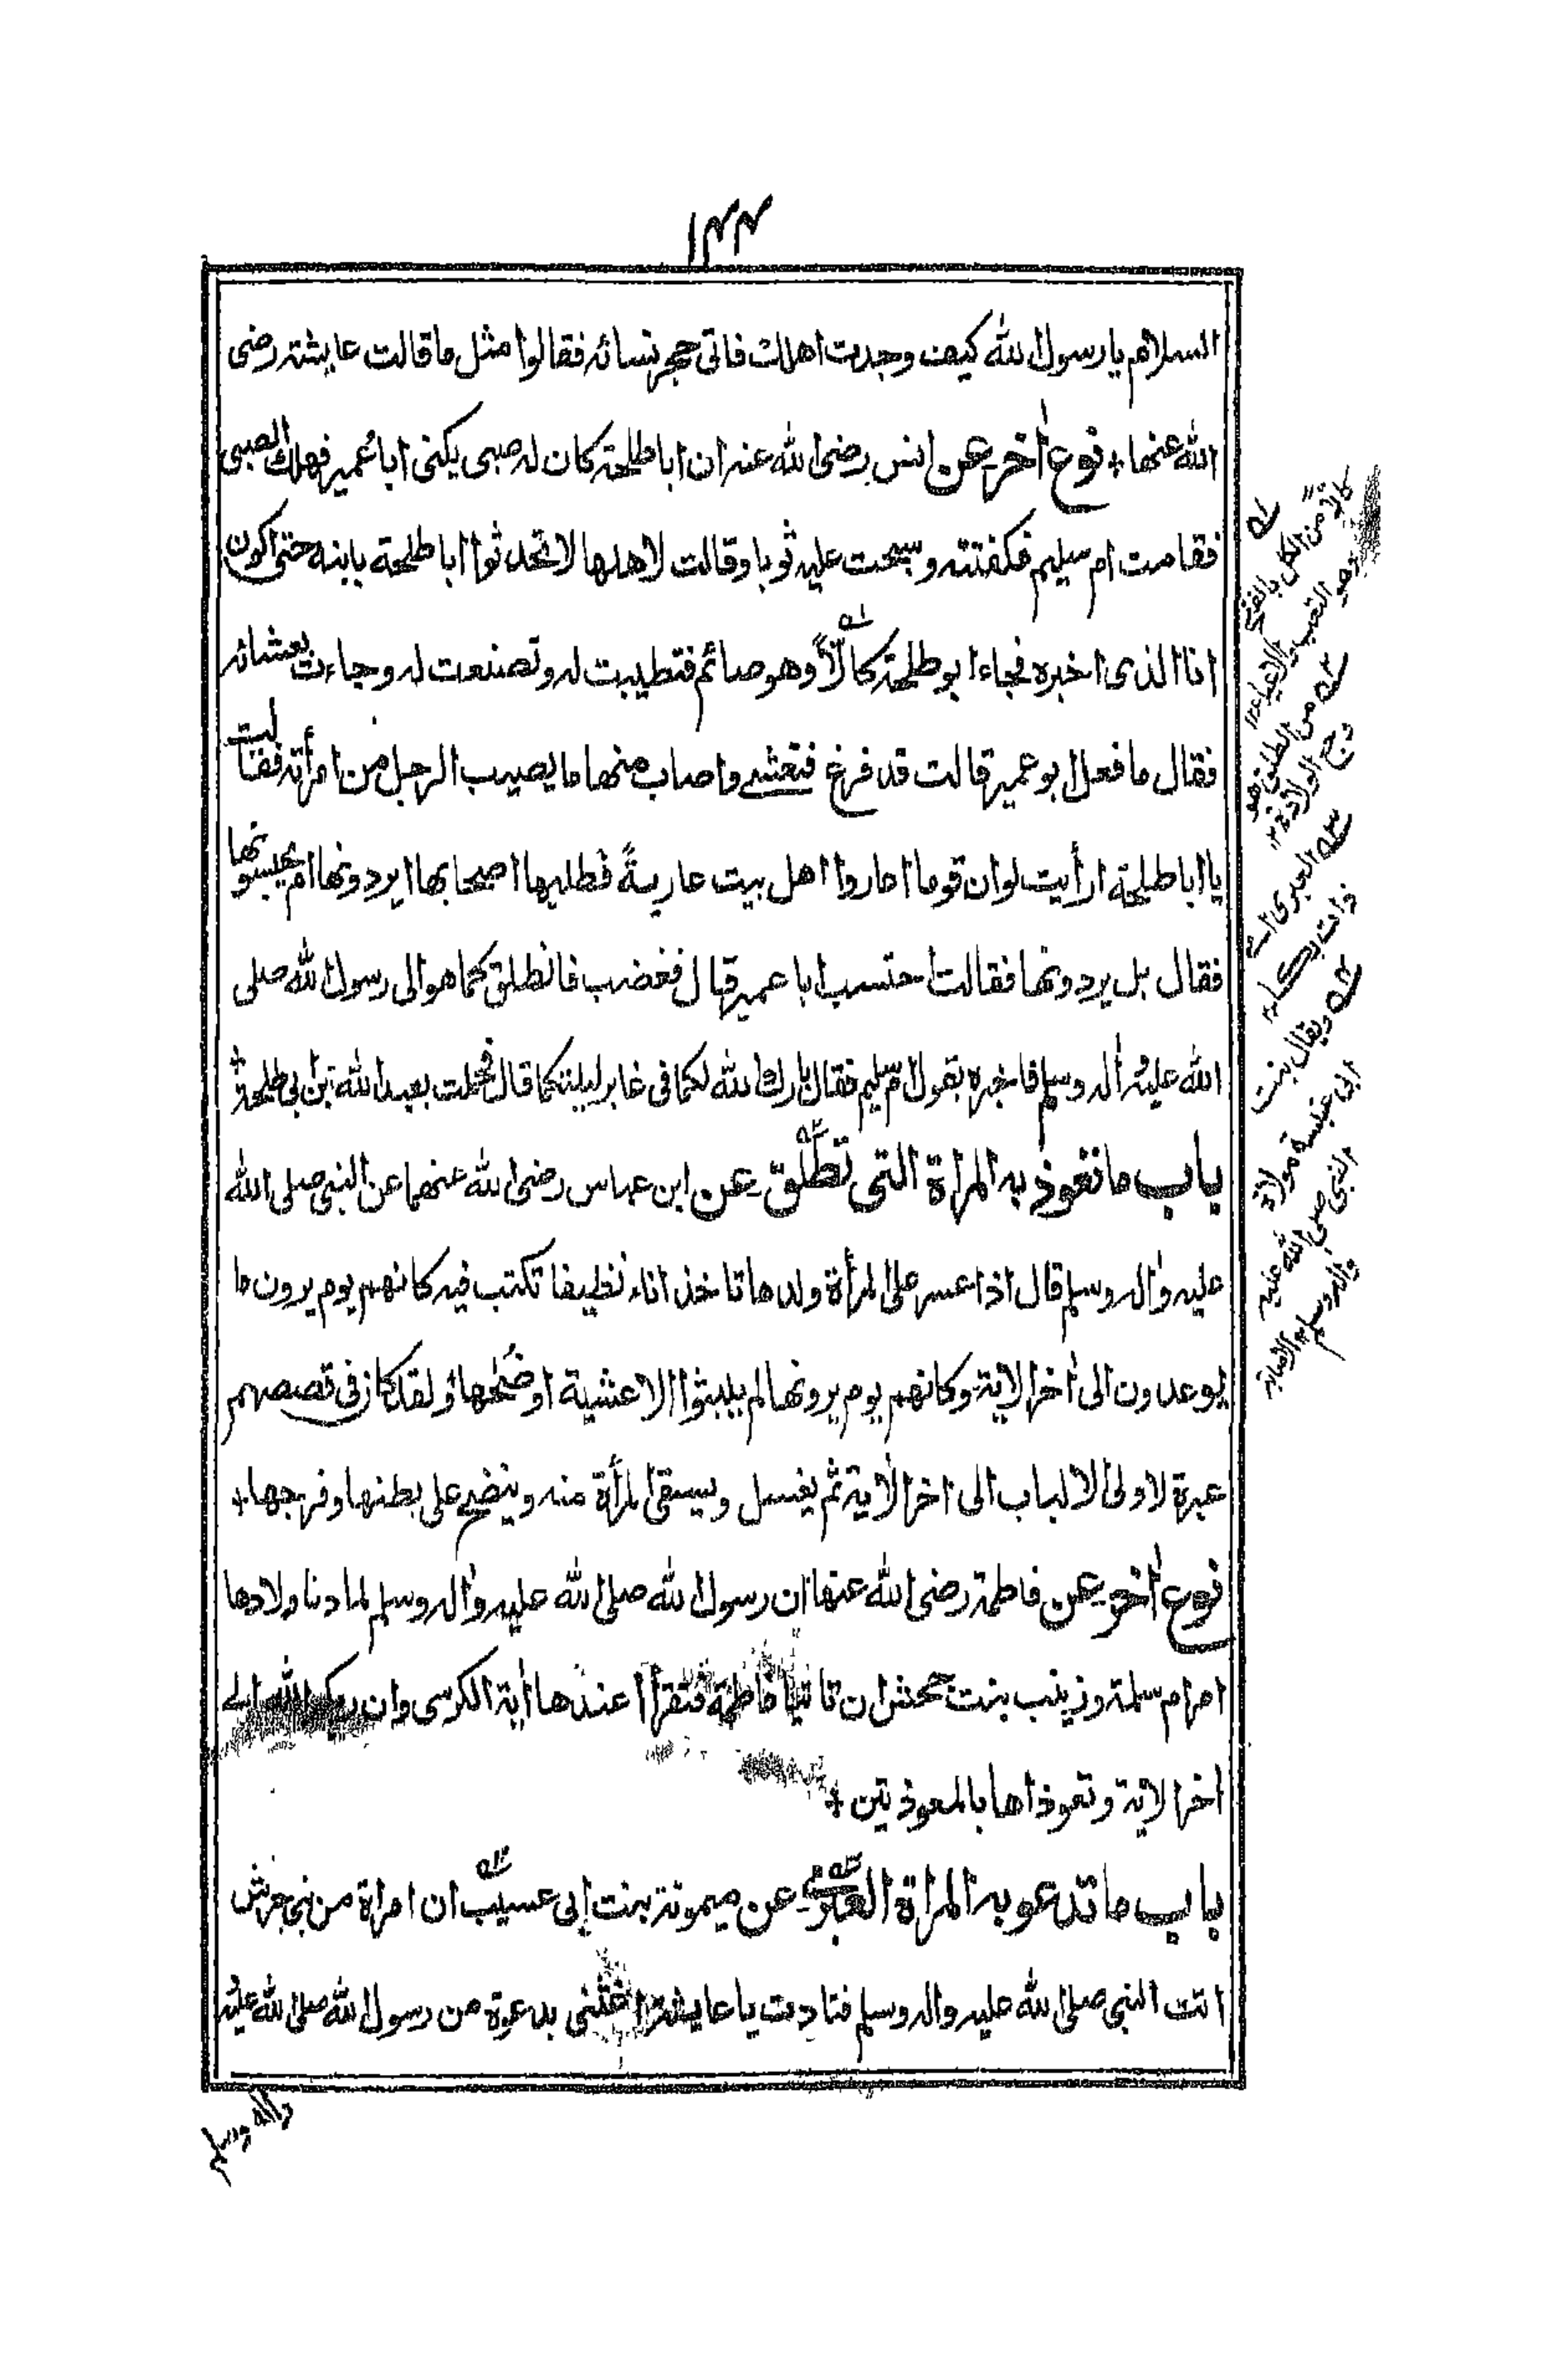 ١٤٤
السلام يا رسول الله كيف وجدت اهلك فاتى حجر نسائه فقالوا مثل ما قالت عايشة رضى
الله عنها + نوع اٰخر عن انس رضى الله عنه ان ابا طلحة كان له صبى يكنى ابا عُمير فهلك الصبى
فقامت ام سليم فكفنته وسجت عليه ثوبا وقالت لاهلها لا تحدثوا ابا طلحة بابنه حتى اكون
انا الذى اخبره فجاء ابو طلحة كالّاً وهو صائم فتطيبت له وتصنعت له وجاءت بعشائه
فقال ما فعل ابو عمير قالت قد فرغ فتعشے واصاب منها ما يصيب الرجل من امرأته فقالت
يا ابا طلحة ارأيت لو ان قوما اعاروا اهل بيت عاريةً فطلبها اصحابها ايردونها ام يحبسونها
فقال بل يردونها فقالت احتسب ابا عمير قال فغضب فانطلق كما هو الى رسول الله صلى
الله عليه واٰله وسلم فاخبره بقول ام سليم فقال بارك الله لكما فى غابر ليلتكما قال فحملت بعبد الله بن ابى طلحة +
باب ما تعوذ به المرأة التى تطلق عن ابن عباس رضى الله عنهما عن النبى صلى الله
عليه واٰله وسلم قال اذا عسر على المرأة ولدها تاخذ اناء نظيفا تكتب فيه كانهم يوم يرون ما
يوعدون الى اٰخر الاية وكانهم يوم يرونها لم يلبثوا الا عشية او ضُحٰها ولقد كان فى قصصهم
عبرة لاولى الالباب الى اخر الاٰية ثم يغسل ويسقى المرأة منه وينضح على بطنها وفرجها +
نوع اٰخر عن فاطمة رضى الله عنها ان رسول الله صلى الله عليه واٰله وسلم لما دنا ولادها
امر ام سلمة وزينب بنت جحش ان تاتيا فاطمة فتقرأ عندها اٰية الكرسى وان ربكم الله الى
اخر الاية وتعوذاها بالمعوذتين +
باب ما تدعو به المرأة الغبرى عن ميمونة بنت ابى عسيب ان امرأة من بنى جرش
اتت النبى صلى الله عليه واله وسلم فنادت يا عايشة اغيثنى بدعوة من رسول الله صلى الله عليه
واله وسلم
كالاً من الكل بالفتح
وهو التعب والاعياء
من الطلق وهو
وجع الولادة
ذات بكاء
ويقال بنت
ابى عنبسة مولاة
النبى صلى الله عليه
واله وسلم